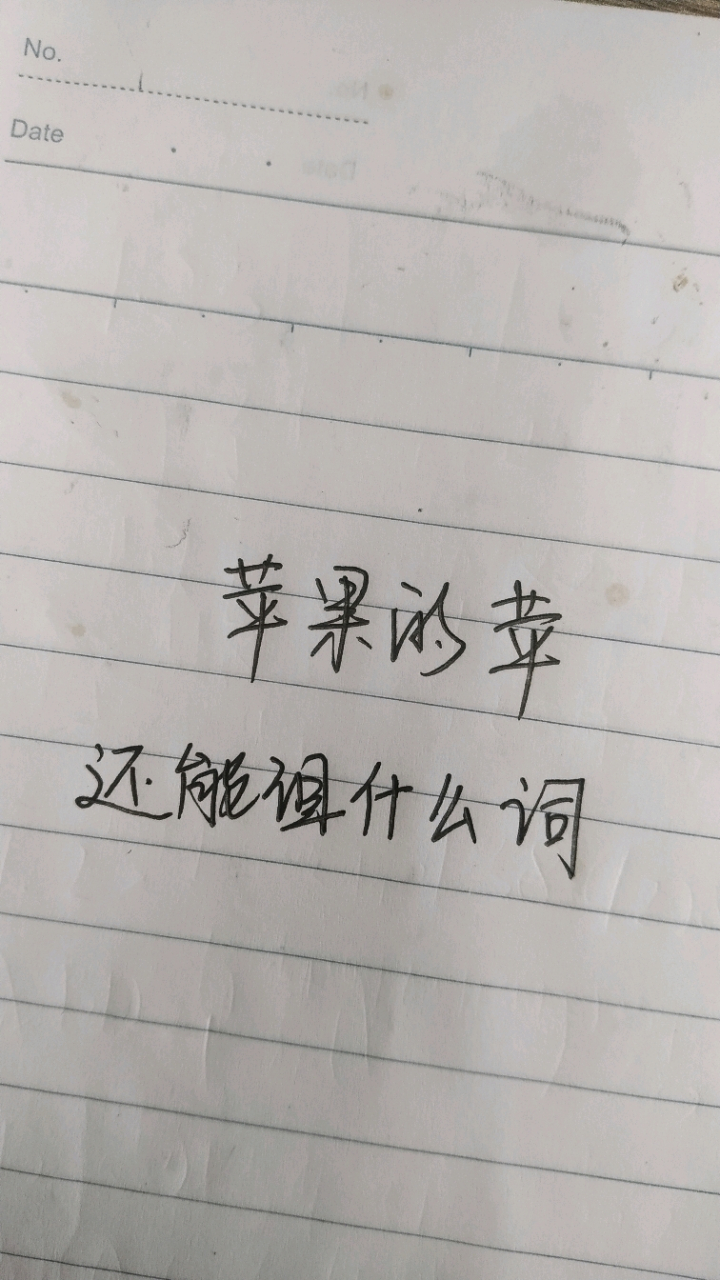 No.
Date
苹果的苹
还能组什么词